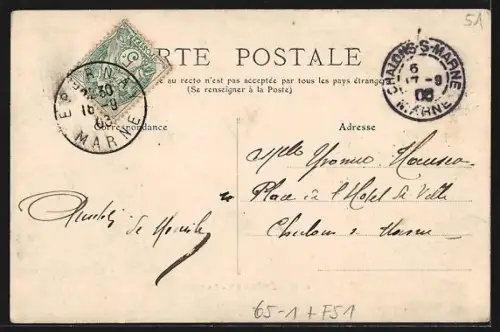 51
CARTE POSTALE
au recto n'est pas acceptée par tous les pays étrangers
(Se renseigner à la Poste)
Correspondance
Adresse
EPERNAY
30
16-9
03
MARNE
CHALONS-S-MARNE
5
17-9
03
MARNE
Mlle Yvonne
Place de l'Hotel de Ville
Chalons s Marne
Amitiés de
65-1 + F51